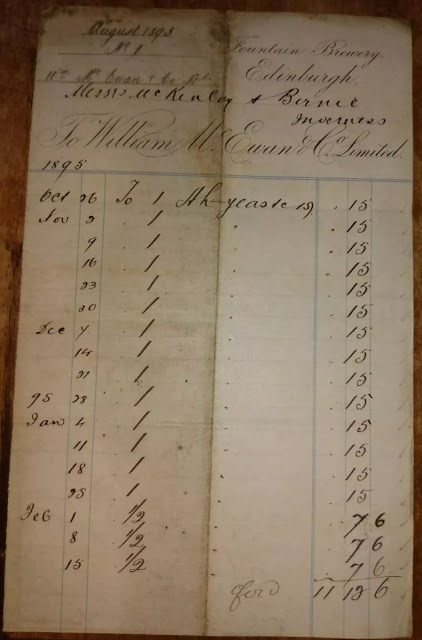 August
No 1
Wm McEwan & Co Ltd
Fountain Brewery,
Edinburgh.
Messrs McKinlay & Birnie
Inverness
To William McEwan & Co Limited.
1895
Oct 26 To 1 Hh-yeast 15/ . 15
Nov 2 . 1 " . 15
9 . 1 " . 15
16 . 1 " . 15
23 . 1 " . 15
30 . 1 " . 15
Dec 7 . 1 " . 15
14 . 1 " . 15
21 . 1 " . 15
95 28 . 1 " . 15
Jan 4 . 1 " . 15
11 . 1 " . 15
18 . 1 " . 15
25 . 1 " . 15
Feb 1 . 1/2 " . 7 6
8 . 1/2 " . 7 6
15 . 1/2 " . 7 6
ford 11 12 6